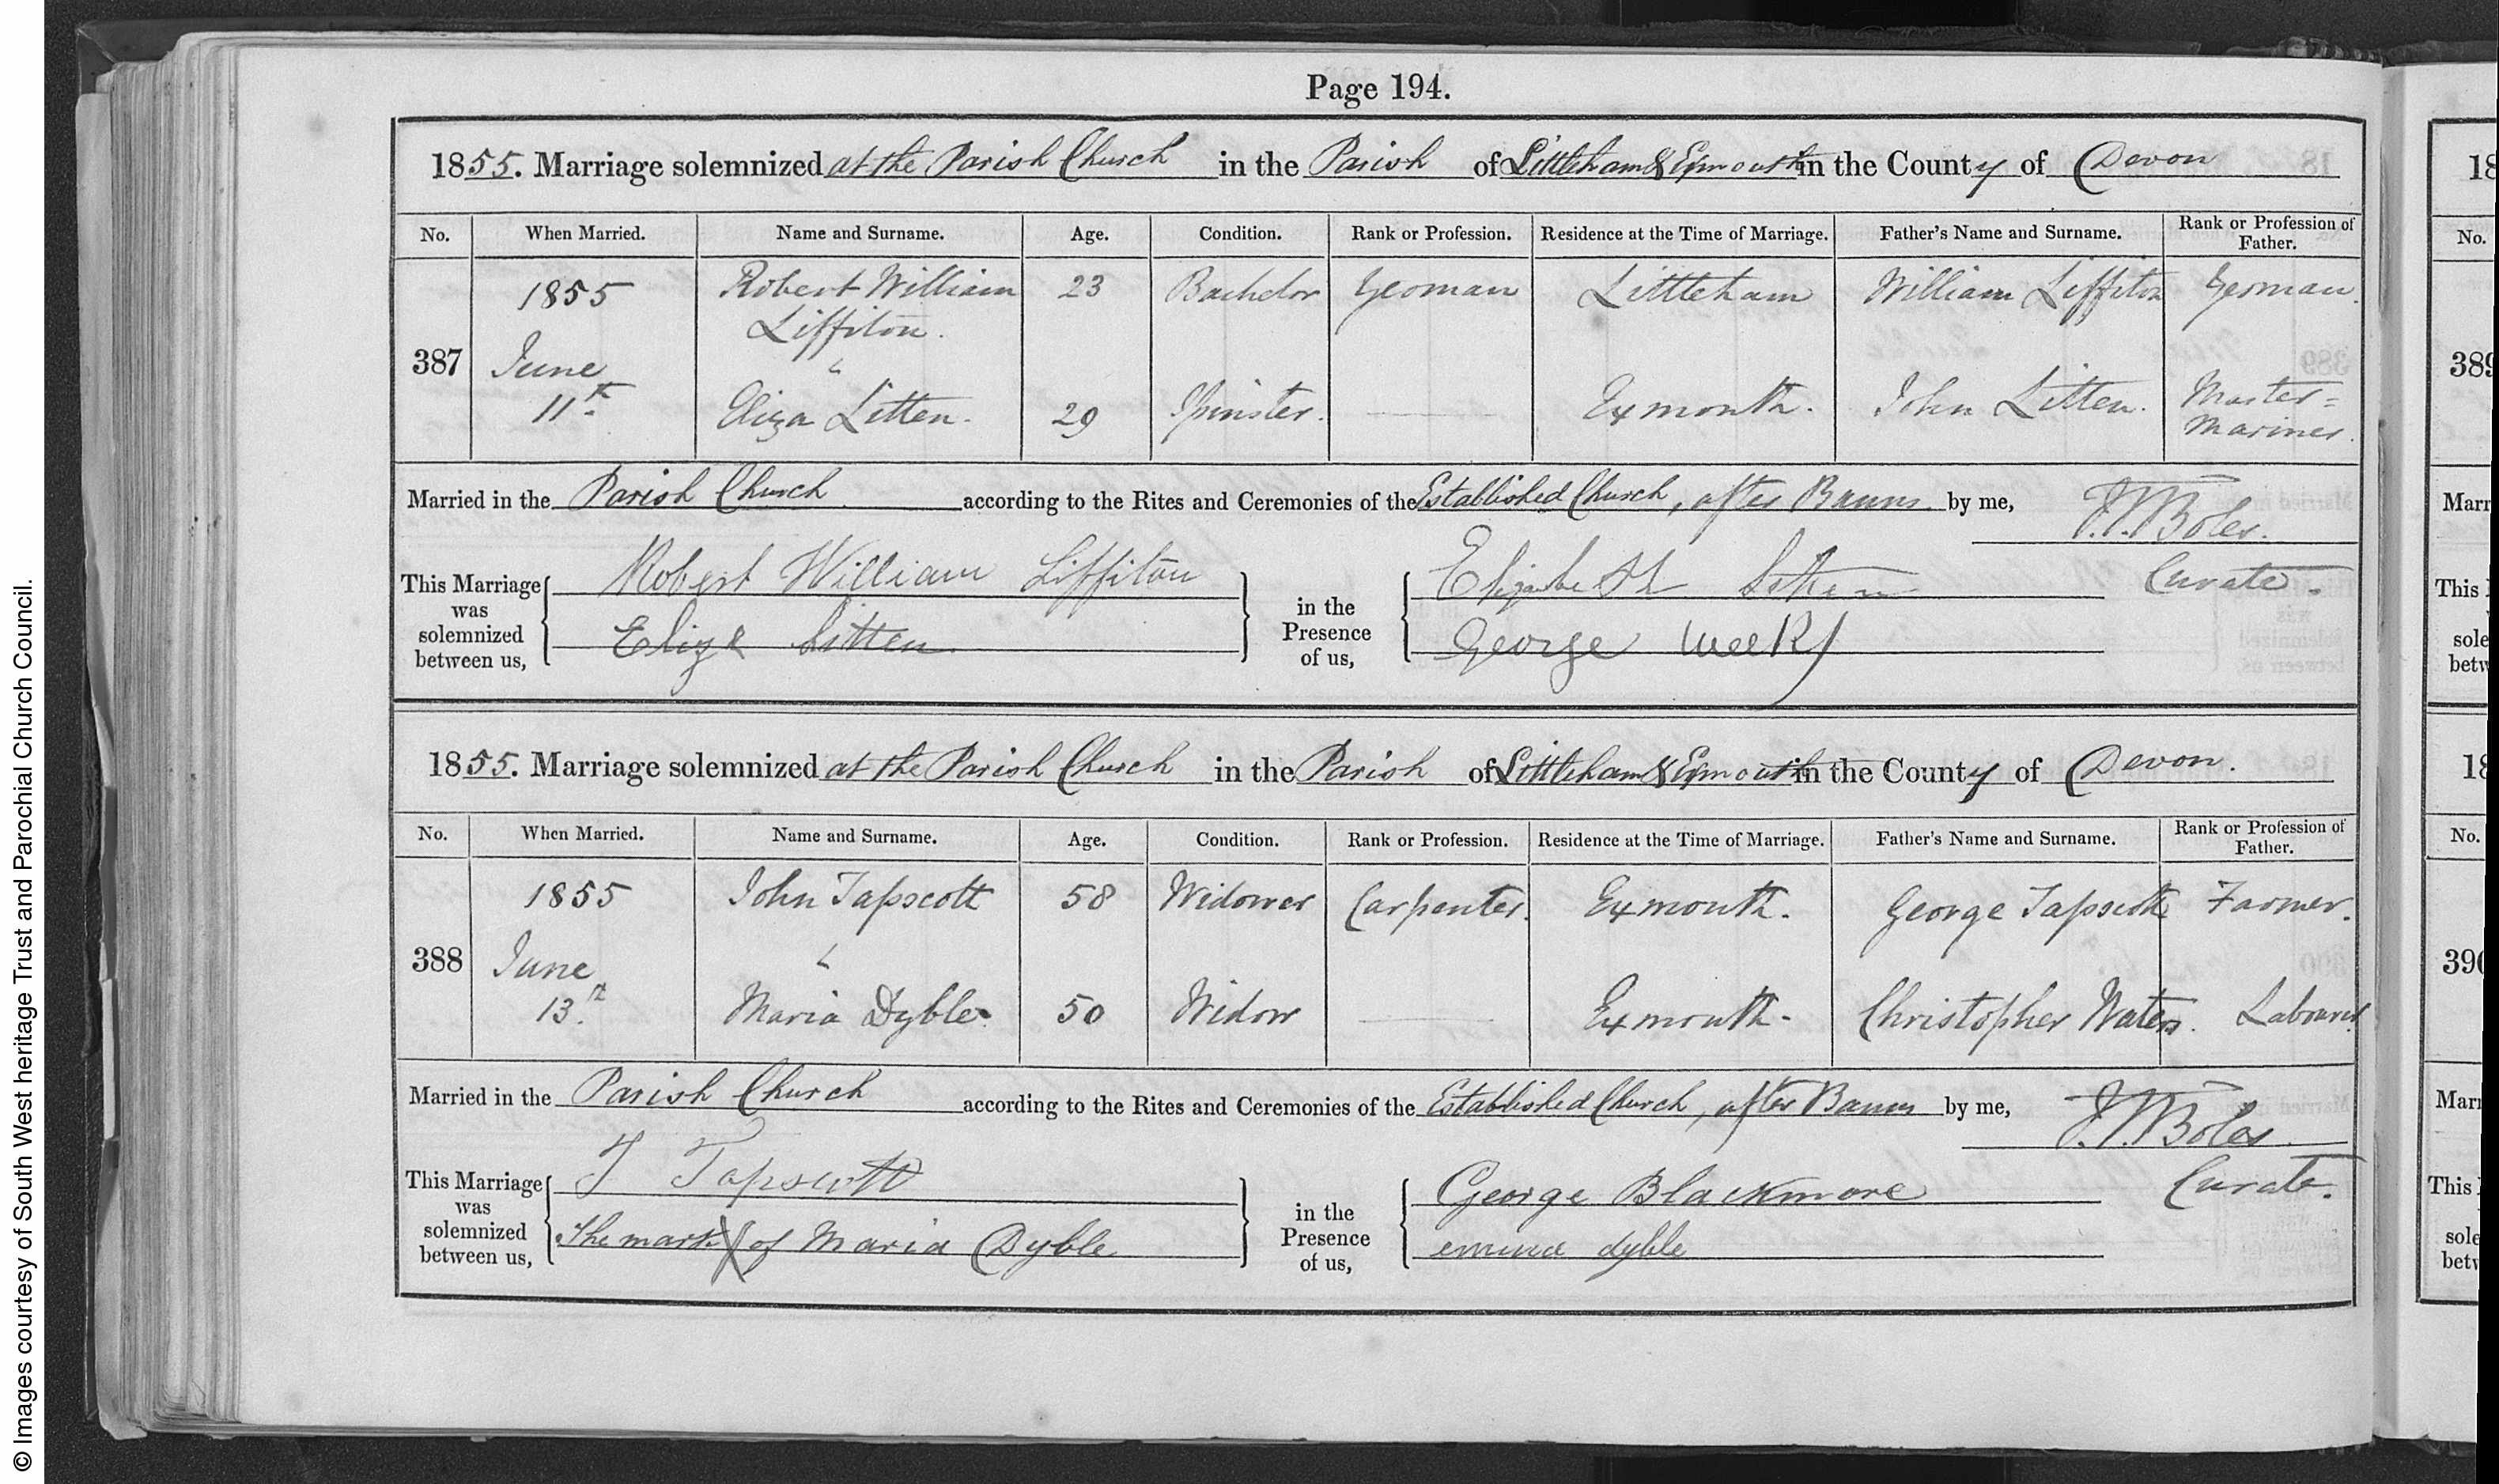 Page 194.
1855. Marriage solemnized at the Parish Church in the Parish of Littleham & Exmouth in the County of Devon
No. When Married. Name and Surname. Age. Condition. Rank or Profession. Residence at the Time of Marriage. Father's Name and Surname. Rank or Profession of Father.
387 1855 June 11th Robert William Liffiton. 23 Bachelor Yeoman Littleham William Liffiton Yeoman.
& Eliza Litten. 29 Spinster. Exmouth. John Litten. Master=Mariner.
Married in the Parish Church according to the Rites and Ceremonies of the Established Church, after Banns by me, J.T. Boles. Curate.
This Marriage was solemnized between us, Robert William Liffiton
Eliza Litten
in the Presence of us, Elizabeth Litten
George Weeks
1855. Marriage solemnized at the Parish Church in the Parish of Littleham & Exmouth in the County of Devon.
No. When Married. Name and Surname. Age. Condition. Rank or Profession. Residence at the Time of Marriage. Father's Name and Surname. Rank or Profession of Father.
388 1855 June 13th John Tapscott 58 Widower Carpenter. Exmouth. George Tapscott Farmer.
& Maria Dyble. 50 Widow Exmouth. Christopher Waters. Labourer.
Married in the Parish Church according to the Rites and Ceremonies of the Established Church, after Banns by me, J.T. Boles Curate.
This Marriage was solemnized between us, J Tapscott
The mark X of Maria Dyble
in the Presence of us, George Blackmore
dyble
18
No.
389
Marr
This
sole
betw
18
No.
390
Marr
This
sole
betw
© Images courtesy of South West heritage Trust and Parochial Church Council.